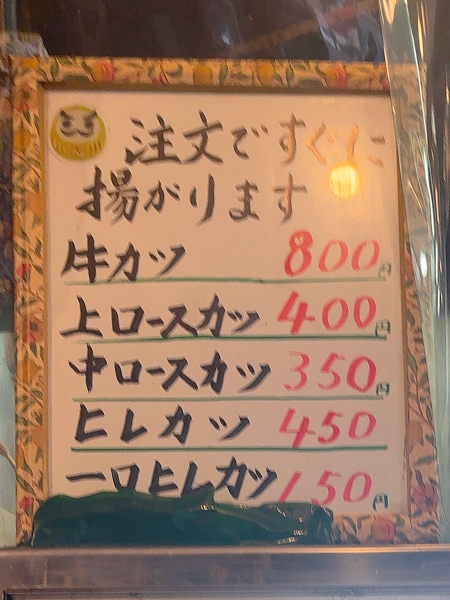 注文ですぐに
揚がります
牛カツ 800円
上ロースカツ 400円
中ロースカツ 350円
ヒレカツ 450
一口ヒレカツ 150円